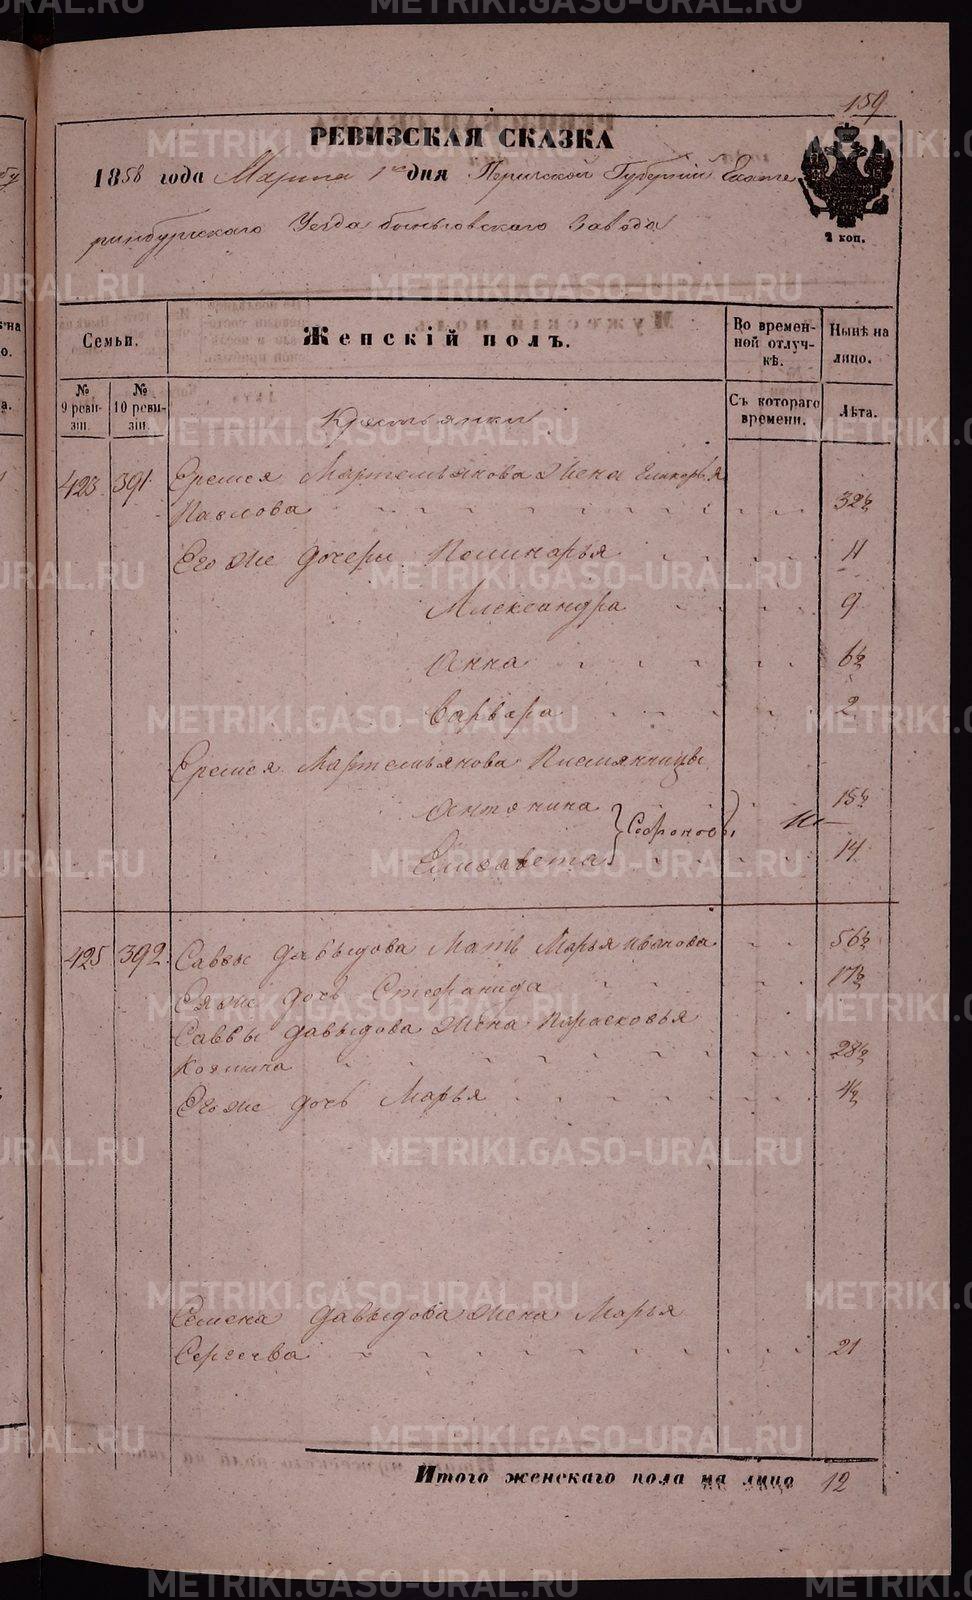 159
РЕВИЗСКАЯ СКАЗКА
1858 года Марта 1го дня Пермской Губернии Екате
ринбургскаго Уезда Быньговскаго Завода
2 коп.
Семьи.
ЖЕНСКІЙ ПОЛЪ.
Во времен-
ной отлуч-
кѣ.
Нынѣ на
лицо.
№
9 реви-
зіи.
№
10 реви-
зіи.
Съ котораго
времени.
Лѣта.
Крестьянки
423 391 Еремея Мартемьянова Жена Гликерья
Павлова 32½
Его же дочери Полинарья 11
Александра 9
Анна 6½
Варвара 2
Еремея Мартемьянова Племянницы
Антонина 15½
Софроновы
Елизавета 14
425 392 Саввы Давыдова Мать Марья Иванова 56½
Ея же дочь Стефанида 17½
Саввы Давыдова Жена Парасковья
Козмина 28½
Его же дочь Марья 4½
Семена Давыдова Жена Марья
Сергеева 21
Итого женскаго пола на лицо 12
METRIKI.GASO-URAL.RU